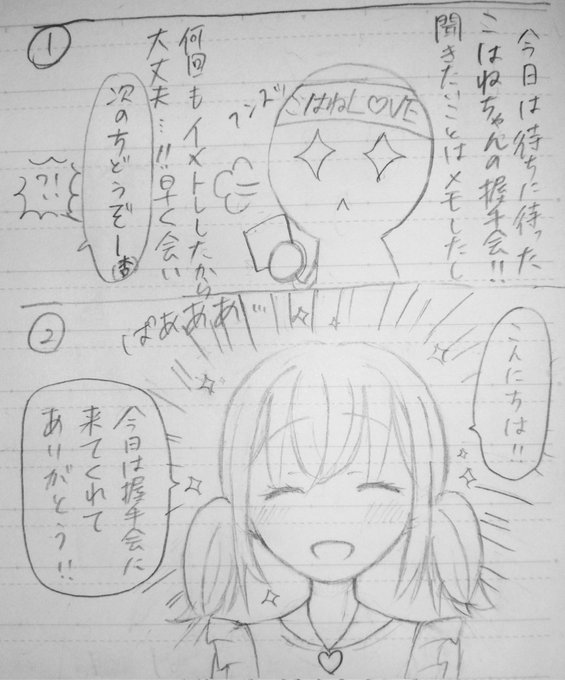 ①
今日は待ちに待った
こはねちゃんの握手会!!
聞きたいことはメモしたし
こはねL♡VE
フンスッ
何回もイメトレしたから
大丈夫…!!早く会い
次の方どうぞー(杏)
?!
②
ぱあぁぁあ…
こんにちは!!
今日は握手会に
来てくれて
ありがとう!!